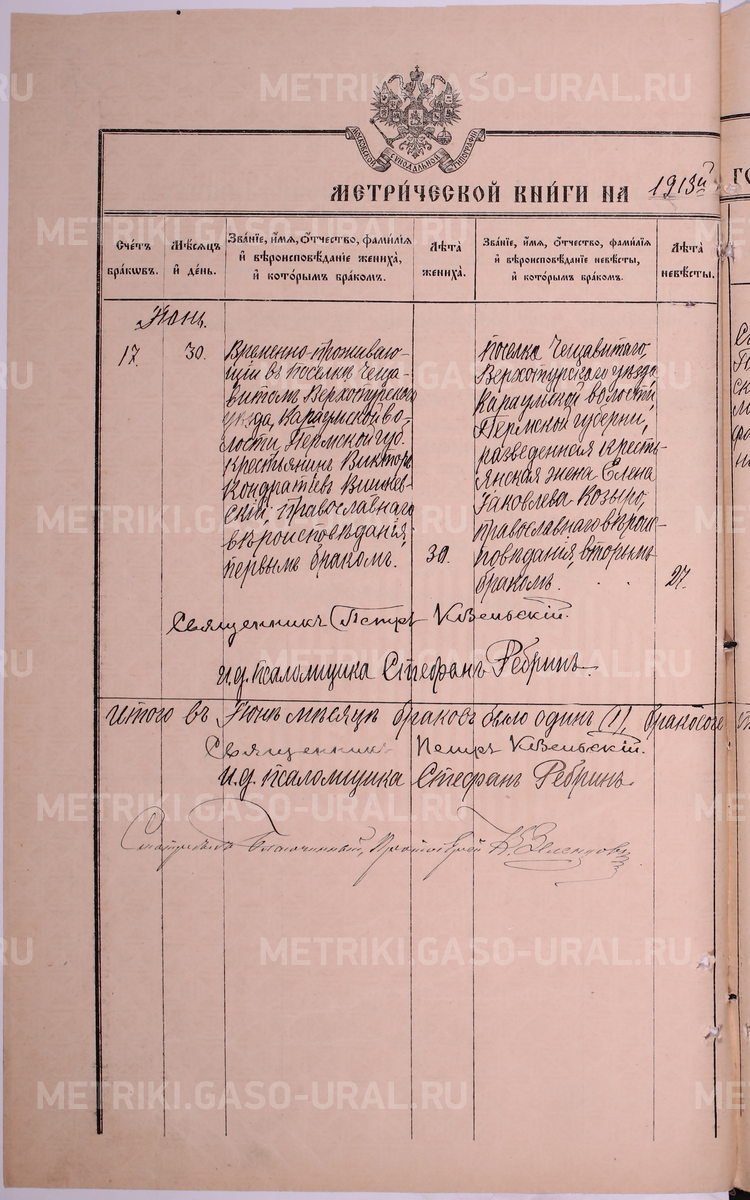 МОСКОВСКОЙ СѴНОДАЛЬНОЙ ТИПОГРАФІИ
МЕТРИ́ЧЕСКОЙ КНИ́ГИ НА 1913й
Сче́тъ бра́кωвъ.
Мѣ́сѧцъ и҆ де́нь.
Зва́нїе, и҆́мѧ, ѻ҆́тчество, фами́лїѧ и҆ вѣроисповѣ́данїе жениха̀, и҆ кото́рымъ бра́комъ.
Лѣ́та жениха̀.
Зва́нїе, и҆́мѧ, ѻ҆́тчество, фами́лїѧ и҆ вѣроисповѣ́данїе невѣ́сты, и҆ кото́рымъ бра́комъ.
Лѣ́та невѣ́сты.
Іюнь.
17.
30.
Временно-проживаю-
щій въ поселкѣ Чеща-
витомъ Верхотурскаго
уѣзда, Караульской во-
лости, Пермской губ.
крестьянинъ Викторъ
Кондратьевъ Вишнев-
скій, православнаго
вѣроисповѣданія,
первымъ бракомъ.
30.
поселка Чещавитаго,
Верхотурскаго уѣзда
Караульской волости,
Пермской губерніи,
разведенная кресть-
янская жена Елена
Яковлева Козыро,
православнаго вѣроис-
повѣданія, вторымъ
бракомъ.
27.
Священникъ Петръ
и.д. псаломщика Стефанъ Ребринъ.
Итого въ Іюнѣ мѣсяцѣ браковъ было одинъ (1),
Священникъ Петръ
и.д. псаломщика Стефанъ Ребринъ.
Благочинный, Протоіерей
METRIKI.GASO-URAL.RU